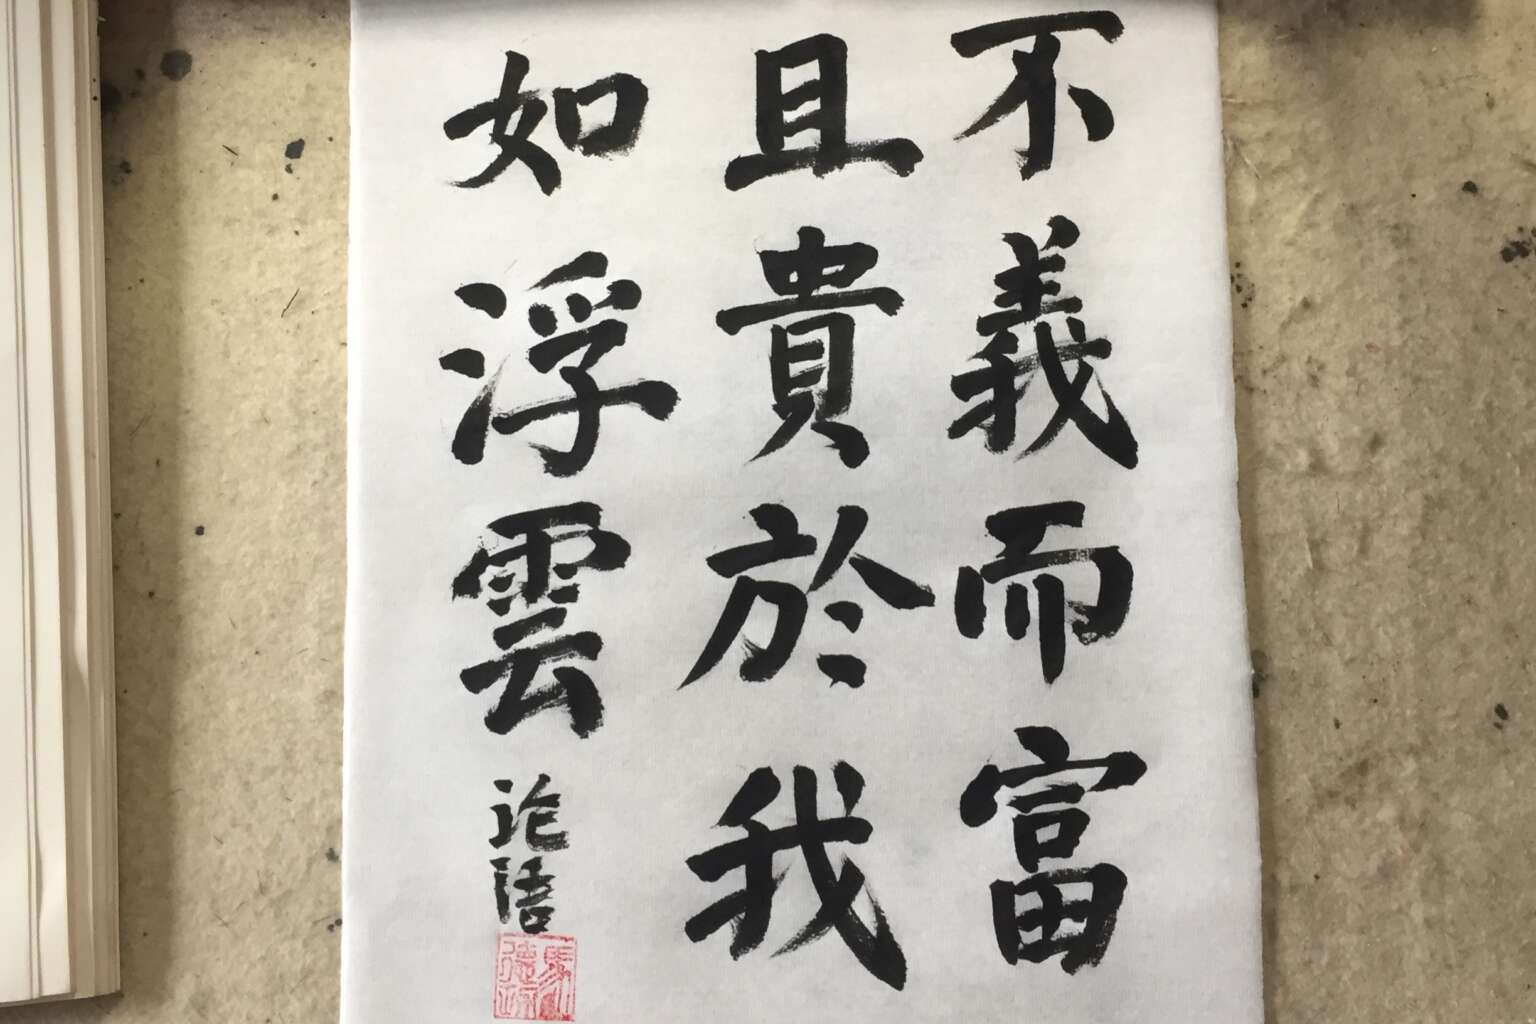 不義而富
且貴於我
如浮雲
论語